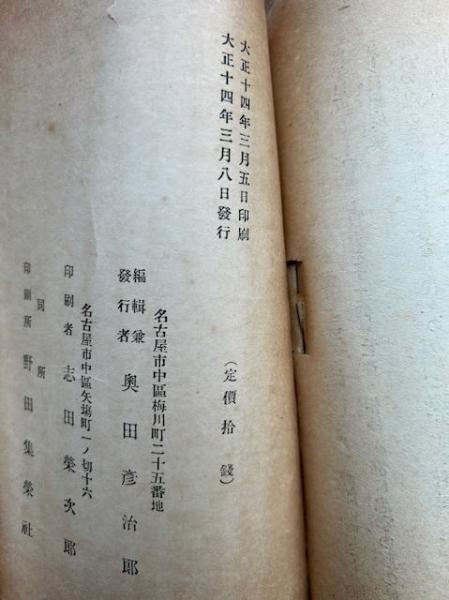 大正十四年三月五日印刷
大正十四年三月八日發行
(定價拾錢)
名古屋市中區梅川町二十五番地
編輯兼
發行者 奧田彥治郎
名古屋市中區矢場町一ノ切十六
印刷者 志田榮次郎
同所
印刷所 野田集榮社